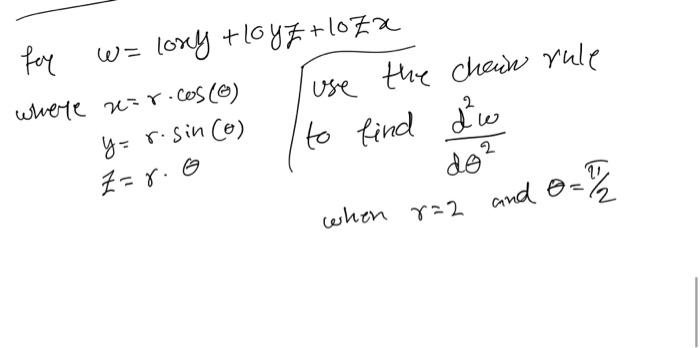 for w= 10xy +10yz+10zx
where x= r.cos(θ)
y= r.sin(θ)
z= r.θ
use the chain rule
to find d²w/dθ²
when r=2 and θ=π/2